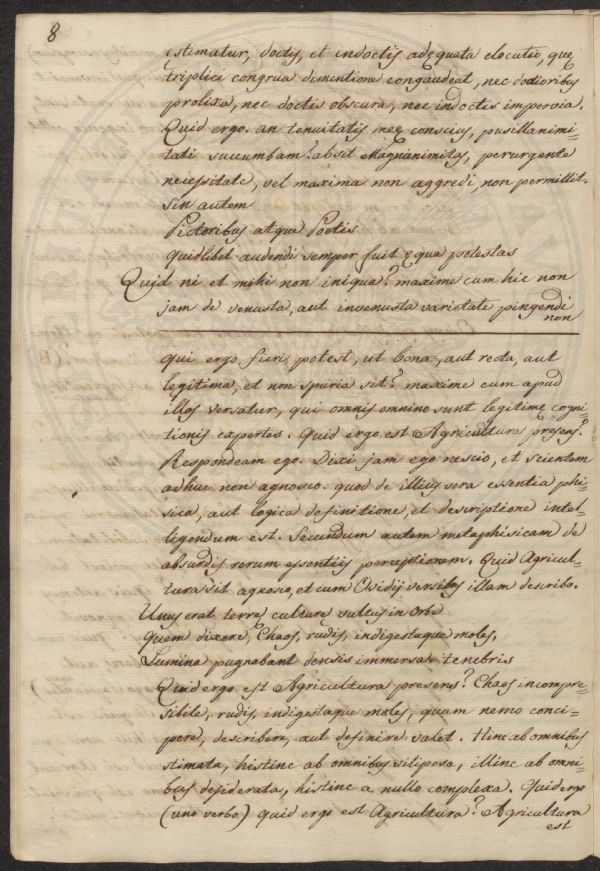 8
estimatur, doctis, et indoctis adęquata elocutio, quę
triplici congrua dimentione congaudeat, nec doctioribus
prolixa, nec doctis obscura, nec indoctis impervia.
Quid ergo. an tenuitatis meę conscius, pusillanimi=
tati sucumbam? absit Magnanimitas, perurgente
necessitate, vel maxima non aggredi, non permittit.
Sin autem
Pictoribus atque Poetis
quidlibet audendi semper fuit ęqua potestas
Quid ni et mihi non iniqua? maxime cum hic non
jam de venusta, aut invenusta varietate pingendi
non
qui ergo fieri potest, ut bona, aut recta, aut
legitima, et non spuria sit? maxime cum apud
illos versatur, qui omnis omnino sunt legitimę cogni=
tionis expertes. Quid ergo est Agricultura presens?
Respondeam ego. Dixi jam ego nescio, et scientem
adhuc non agnosco. quod de illius vera essentia phi=
sica, aut logica definitione, et descriptione intel=
ligendum est. Secundum autem metaphisicam de
absurdis rerum essentiis perceptionem. Quid Agricul=
tura sit agnosco, et cum Ovidij versibus illam describo.
Unus erat terrę culturę vultus in Orbe
quem dixere, Chaos, rudis, indigestaque moles,
Lumina pugnabant densis immersa tenebris
Quid ergo est Agricultura presens? Chaos incompre=
sibile, rudis, indigestaque moles, quam nemo conci=
pere, describere, aut definire valet. Hinc ab omnibus
stimata, histinc ab omnibus vilipesa, illinc ab omni=
bus desiderata, histinc a nullo complexa. Quid ergo
(uno verbo) quid ergo est Agricultura? Agricultura
est